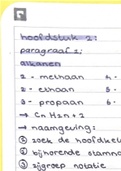 hoofdstuk 2:
paragraaf 1:
alkanen
1 - methaan 4 -
2 - ethaan 5 -
3 - propaan 6 -
→ CnH2n+2
→ naamgeving:
zoek de hoofdket
bijhorende stamna
zijgroep notatie